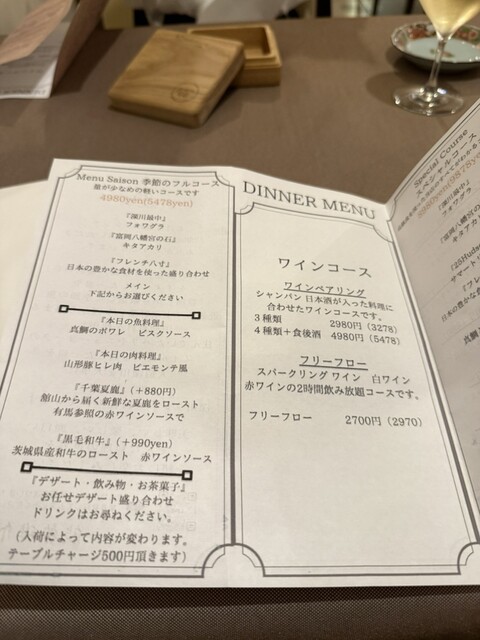 Menu Saison 季節のフルコース
量が少なめの軽いコースです
4980yen(5478yen)
『深川最中』
フォワグラ
『富岡八幡宮の石』
キタアカリ
『フレンチ八寸』
日本の豊かな食材を使った盛り合わせ
メイン
下記からお選びください
『本日の魚料理』
真鯛のポワレ ビスクソース
『本日の肉料理』
山形豚ヒレ肉 ピエモンテ風
『千葉夏鹿』(+880円)
館山から届く新鮮な夏鹿をロースト
有馬参照の赤ワインソースで
『黒毛和牛』(+990yen)
茨城県産和牛のロースト 赤ワインソース
『デザート・飲み物・お茶菓子』
お任せデザート盛り合わせ
ドリンクはお尋ねください。
(入荷によって内容が変わります。
テーブルチャージ500円頂きます)
DINNER MENU
ワインコース
ワインペアリング
シャンパン 日本酒が入った料理に
合わせたワインコースです。
3種類 2980円(3278)
4種類+食後酒 4980円(5478)
フリーフロー
スパークリング ワイン 白ワイン
赤ワインの2時間飲み放題コースです。
フリーフロー 2700円(2970)
Special Course
スペシャルコース
『深川最中』
フォワグラ
『富岡八幡宮の
キタアカリ